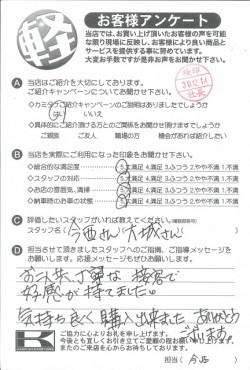 軽
お客様アンケート
当店では、お買い上げ頂いたお客様の声を可能
な限り現場に反映し、お客様により良い商品と
サービスを提供する事に努めています。
大変お手数ですが是非お声をお聞かせ下さい。
A 当店はご紹介を大切にしております。
ご紹介キャンペーンについてお聞かせ下さい。
はい いいえ
ご親族 ご友人 職場の方 機会があれば紹介したい
B 当店を実際にご利用になった印象をお聞かせ下さい。
◇総合的な満足度 5.大満足 4.満足 3.ふつう 2.やや不満 1.不満
◇スタッフの対応 5.大満足 4.満足 3.ふつう 2.やや不満 1.不満
◇お店の雰囲気、清掃 5.大満足 4.満足 3.ふつう 2.やや不満 1.不満
◇納車時のお車の状態 5.大満足 4.満足 3.ふつう 2.やや不満 1.不満
C 評価したいスタッフがいれば教えてください。(複数回答可)
スタッフ名( 今西さん 大城さん )
D 担当させて頂きましたスタッフへのご指摘、ご指導メッセージを
お願いします。応援メッセージもぜひお願いします。
丁寧な接客で
好感が持てました。
気持ち良く購入出来ました。ありがとう
ございます。
ご協力に心よりお礼を申し上げます。
今後とも宜しくお引き立てご愛顧の程お願い申し上げます。
またのご来店を心からお待ちしております。
担当( 今西 )